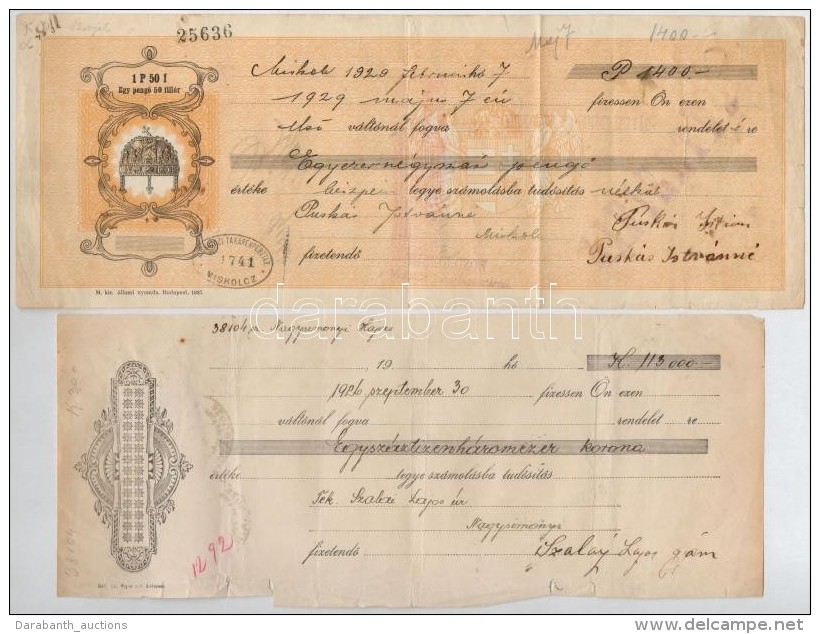 25636
Maj 7
1400.-
1 P 50 f
Egy pengő 50 fillér
Miskolc 1929 február hó 7 P 1400.-
1929 május 7 én fizessen Ön ezen
első váltónál fogva rendelet é re
Egyezernégyszáz pengő
értéke készpénz tegye számolásba tudósítás nélkül
Puskás Istvánné Puskás István
Miskolc
fizetendő Puskás Istvánné
TAKARÉKPÉNZTÁR
1741
MISKOLCZ
M. kir. állami nyomda. Budapest, 1927.
darabanth
38104
19 hó K. 113000.-
1926 szeptember 30 fizessen Ön ezen
váltónál fogva rendelet re
Egyszáztizenháromezer korona
értéke tegye számolásba tudósítás
Tek. Szalai Lajos úr
fizetendő Szalay Lajos gám
K 300
38104
1292
Darabanth_auctions
delcampe.net